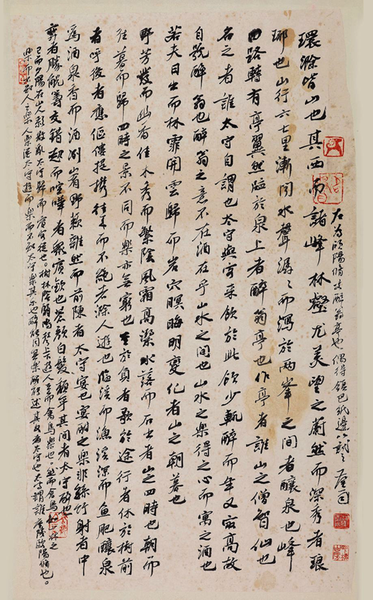 環滁皆山也其西南諸峰林壑尤美望之蔚然而深秀者琅
琊也山行六七里漸聞水聲潺潺而瀉於兩峯之間者釀泉也峰
回路轉有亭翼然臨於泉上者醉翁亭也作亭者誰山之僧智仙也
名之者誰太守自謂也太守與客來飲於此飲少輒醉而年又最高故
自號醉翁也醉翁之意不在酒在乎山水之間也山水之樂得之心而寓之酒也
若夫日出而林霏開雲歸而岩穴暝晦明變化者山之朝暮也
野芳發而幽香佳木秀而繁陰風霜高潔水落而石出者山之四時也朝而
往暮而歸四時之景不同而樂亦無窮也至於負者歌於途行者休於樹前
者呼後者應傴僂提攜往來而不絕者滁人遊也臨溪而漁溪深而魚肥釀泉
為酒泉香而酒洌山肴野蔌雜然而前陳者太守宴也宴酣之樂非絲竹射者中
弈者勝觥籌交錯起而諠譁者衆賓歡也蒼顏白髮頹乎其間者太守醉也
已而夕陽在山人影散亂太守歸而賓客從也樹林陰翳鳴聲上下遊人去而禽鳥樂也然而禽鳥知山林之
樂而不知人之樂人知從太守遊而樂而不知太守之樂其樂也醉能同其樂醒能述其文者太守也太守謂誰廬陵歐陽脩也
右為歐陽脩之醉翁亭也偶得